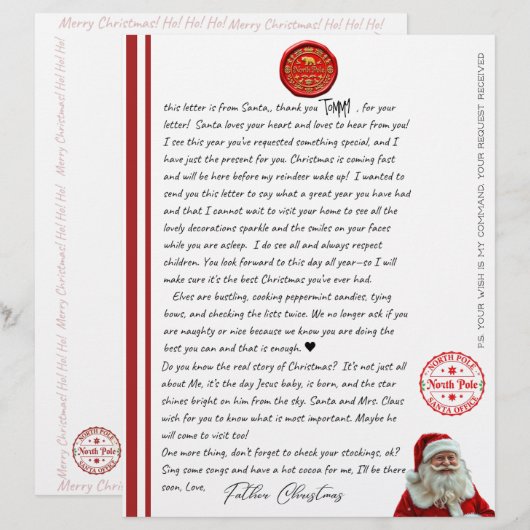 Merry Christmas! Ho! Ho! Ho! Merry Christmas! Ho! Ho! Ho!
Merry Christmas! Ho! Ho! Ho! Merry Christmas! Ho! Ho! Ho!
North Pole
this letter is from Santa,, thank you TOMMY , for your
letter! Santa loves your heart and loves to hear from you!
I see this year you've requested something special, and I
have just the present for you. Christmas is coming fast
and will be here before my reindeer wake up! I wanted to
send you this letter to say what a great year you have had
and that I cannot wait to visit your home to see all the
lovely decorations sparkle and the smiles on your faces
while you are asleep. I do see all and always respect
children. You look forward to this day all year—so I will
make sure it's the best Christmas you've ever had.
Elves are bustling, cooking peppermint candies, tying
bows, and checking the lists twice. We no longer ask if you
are naughty or nice because we know you are doing the
best you can and that is enough. ♥
Do you know the real story of Christmas? It's not just all
about Me, it's the day Jesus baby, is born, and the star
shines bright on him from the sky. Santa and Mrs. Claus
wish for you to know what is most important. Maybe he
will come to visit too!
One more thing, don't forget to check your stockings, ok?
Sing some songs and have a hot cocoa for me, I'll be there
soon, Love, Father Christmas
P.S. YOUR WISH IS MY COMMAND, YOUR REQUEST RECEIVED
NORTH POLE
North Pole
SANTA OFFICE
NORTH POLE
North Pole
SANTA OFFICE
Merry Christmas! Ho!